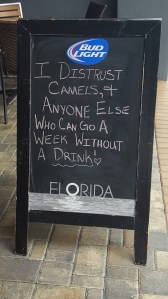 BUD
LIGHT
I DISTRUST
CAMELS, &
ANYONE ELSE
WHO CAN GO A
WEEK WITHOUT
A DRINK!
FLORIDA